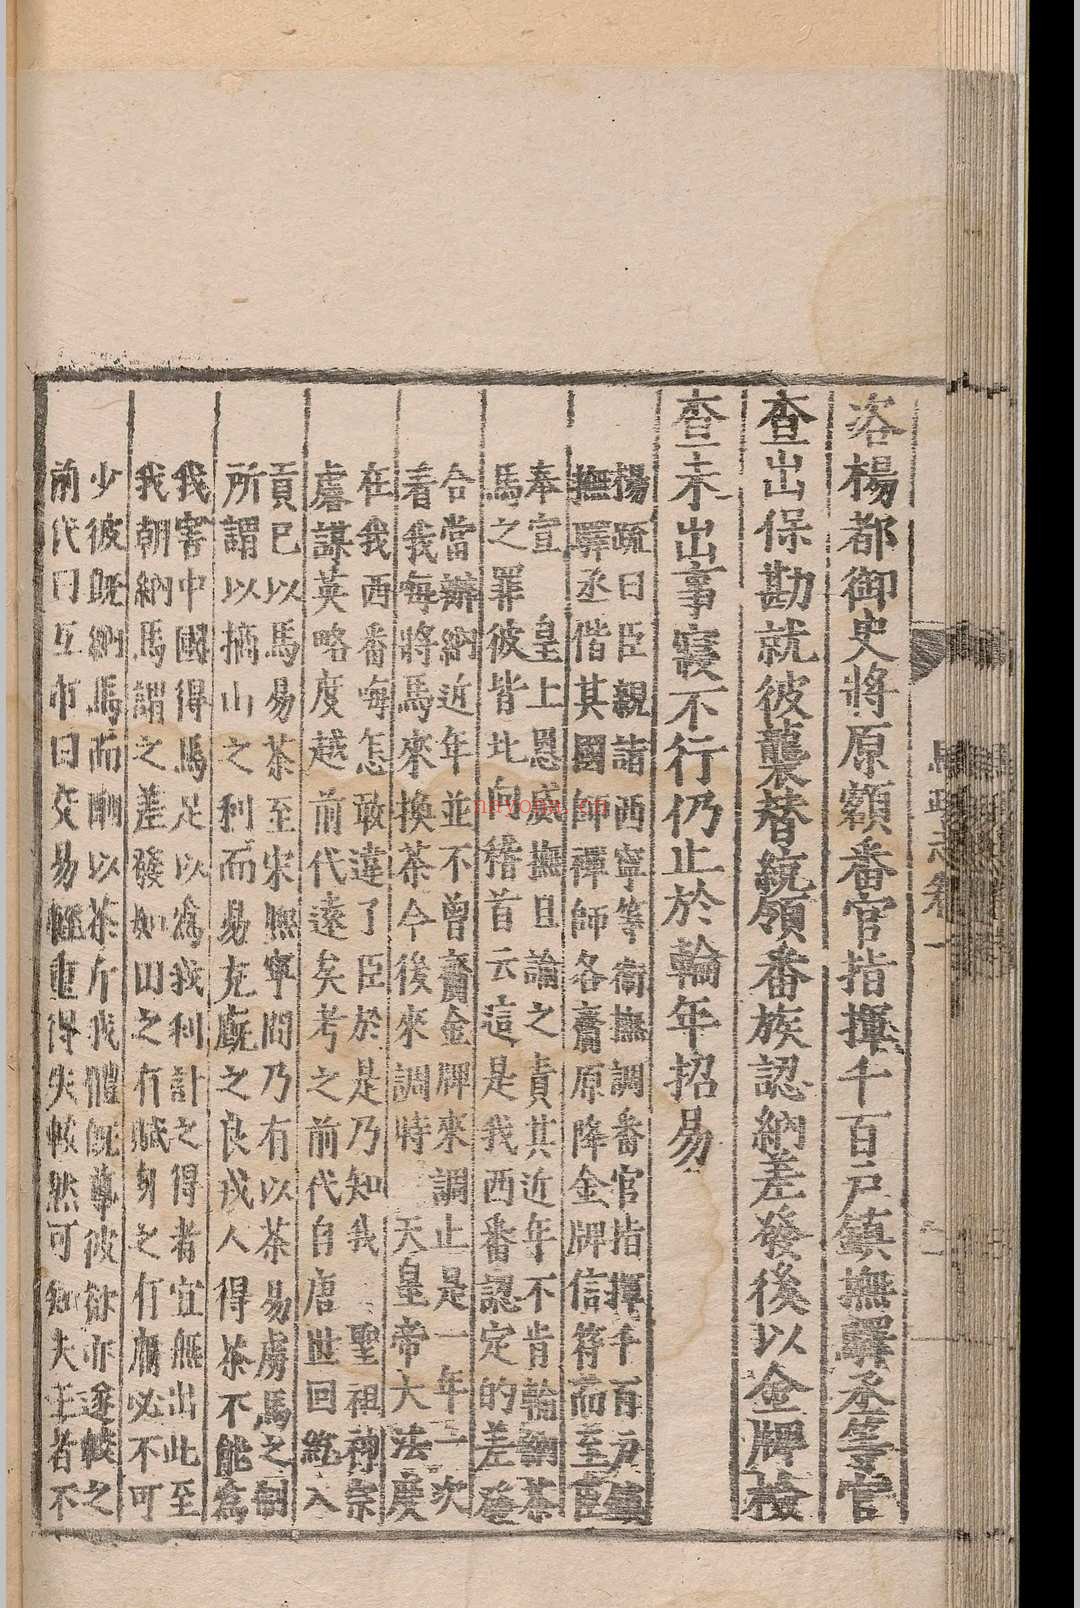 咨楊都御史將原額番官指揮千百戶鎮撫驛丞等官
查出保勘就彼襲替統領番族認納差發後以金牌檢
查未出事寢不行仍止於輪年招易
楊疏曰臣親詣西寧等衛撫調番官指揮千百戶鎮
撫驛丞偕其國師禪師各齎原降金牌信符而至臣
奉宣 皇上恩威撫且諭之責其近年不肯輪納茶
馬之罪彼皆北向稽首云這是我西番認定的差發
合當辦納近年並不曾齎金牌來調止是一年一次
着我每將馬來換茶今後來調時 天皇帝大法度
在我西番每怎敢違了臣於是乃知我 聖祖神宗
睿謀英略度越前代遠矣考之前代自唐世回紇入
貢已以馬易茶至宋熙寧間乃有以茶易虜馬之制
所謂以摘山之利而易充廐之良戎人得茶不能為
我害中國得馬足以為我利計之得者宜無出此至
我朝納馬謂之差發如田之有賦身之有庸必不可
少彼既納馬而酬以茶斤我體既尊彼欲亦遂較之
前代曰互市曰交易輕重得失較然可知夫王者不
馬政志卷一